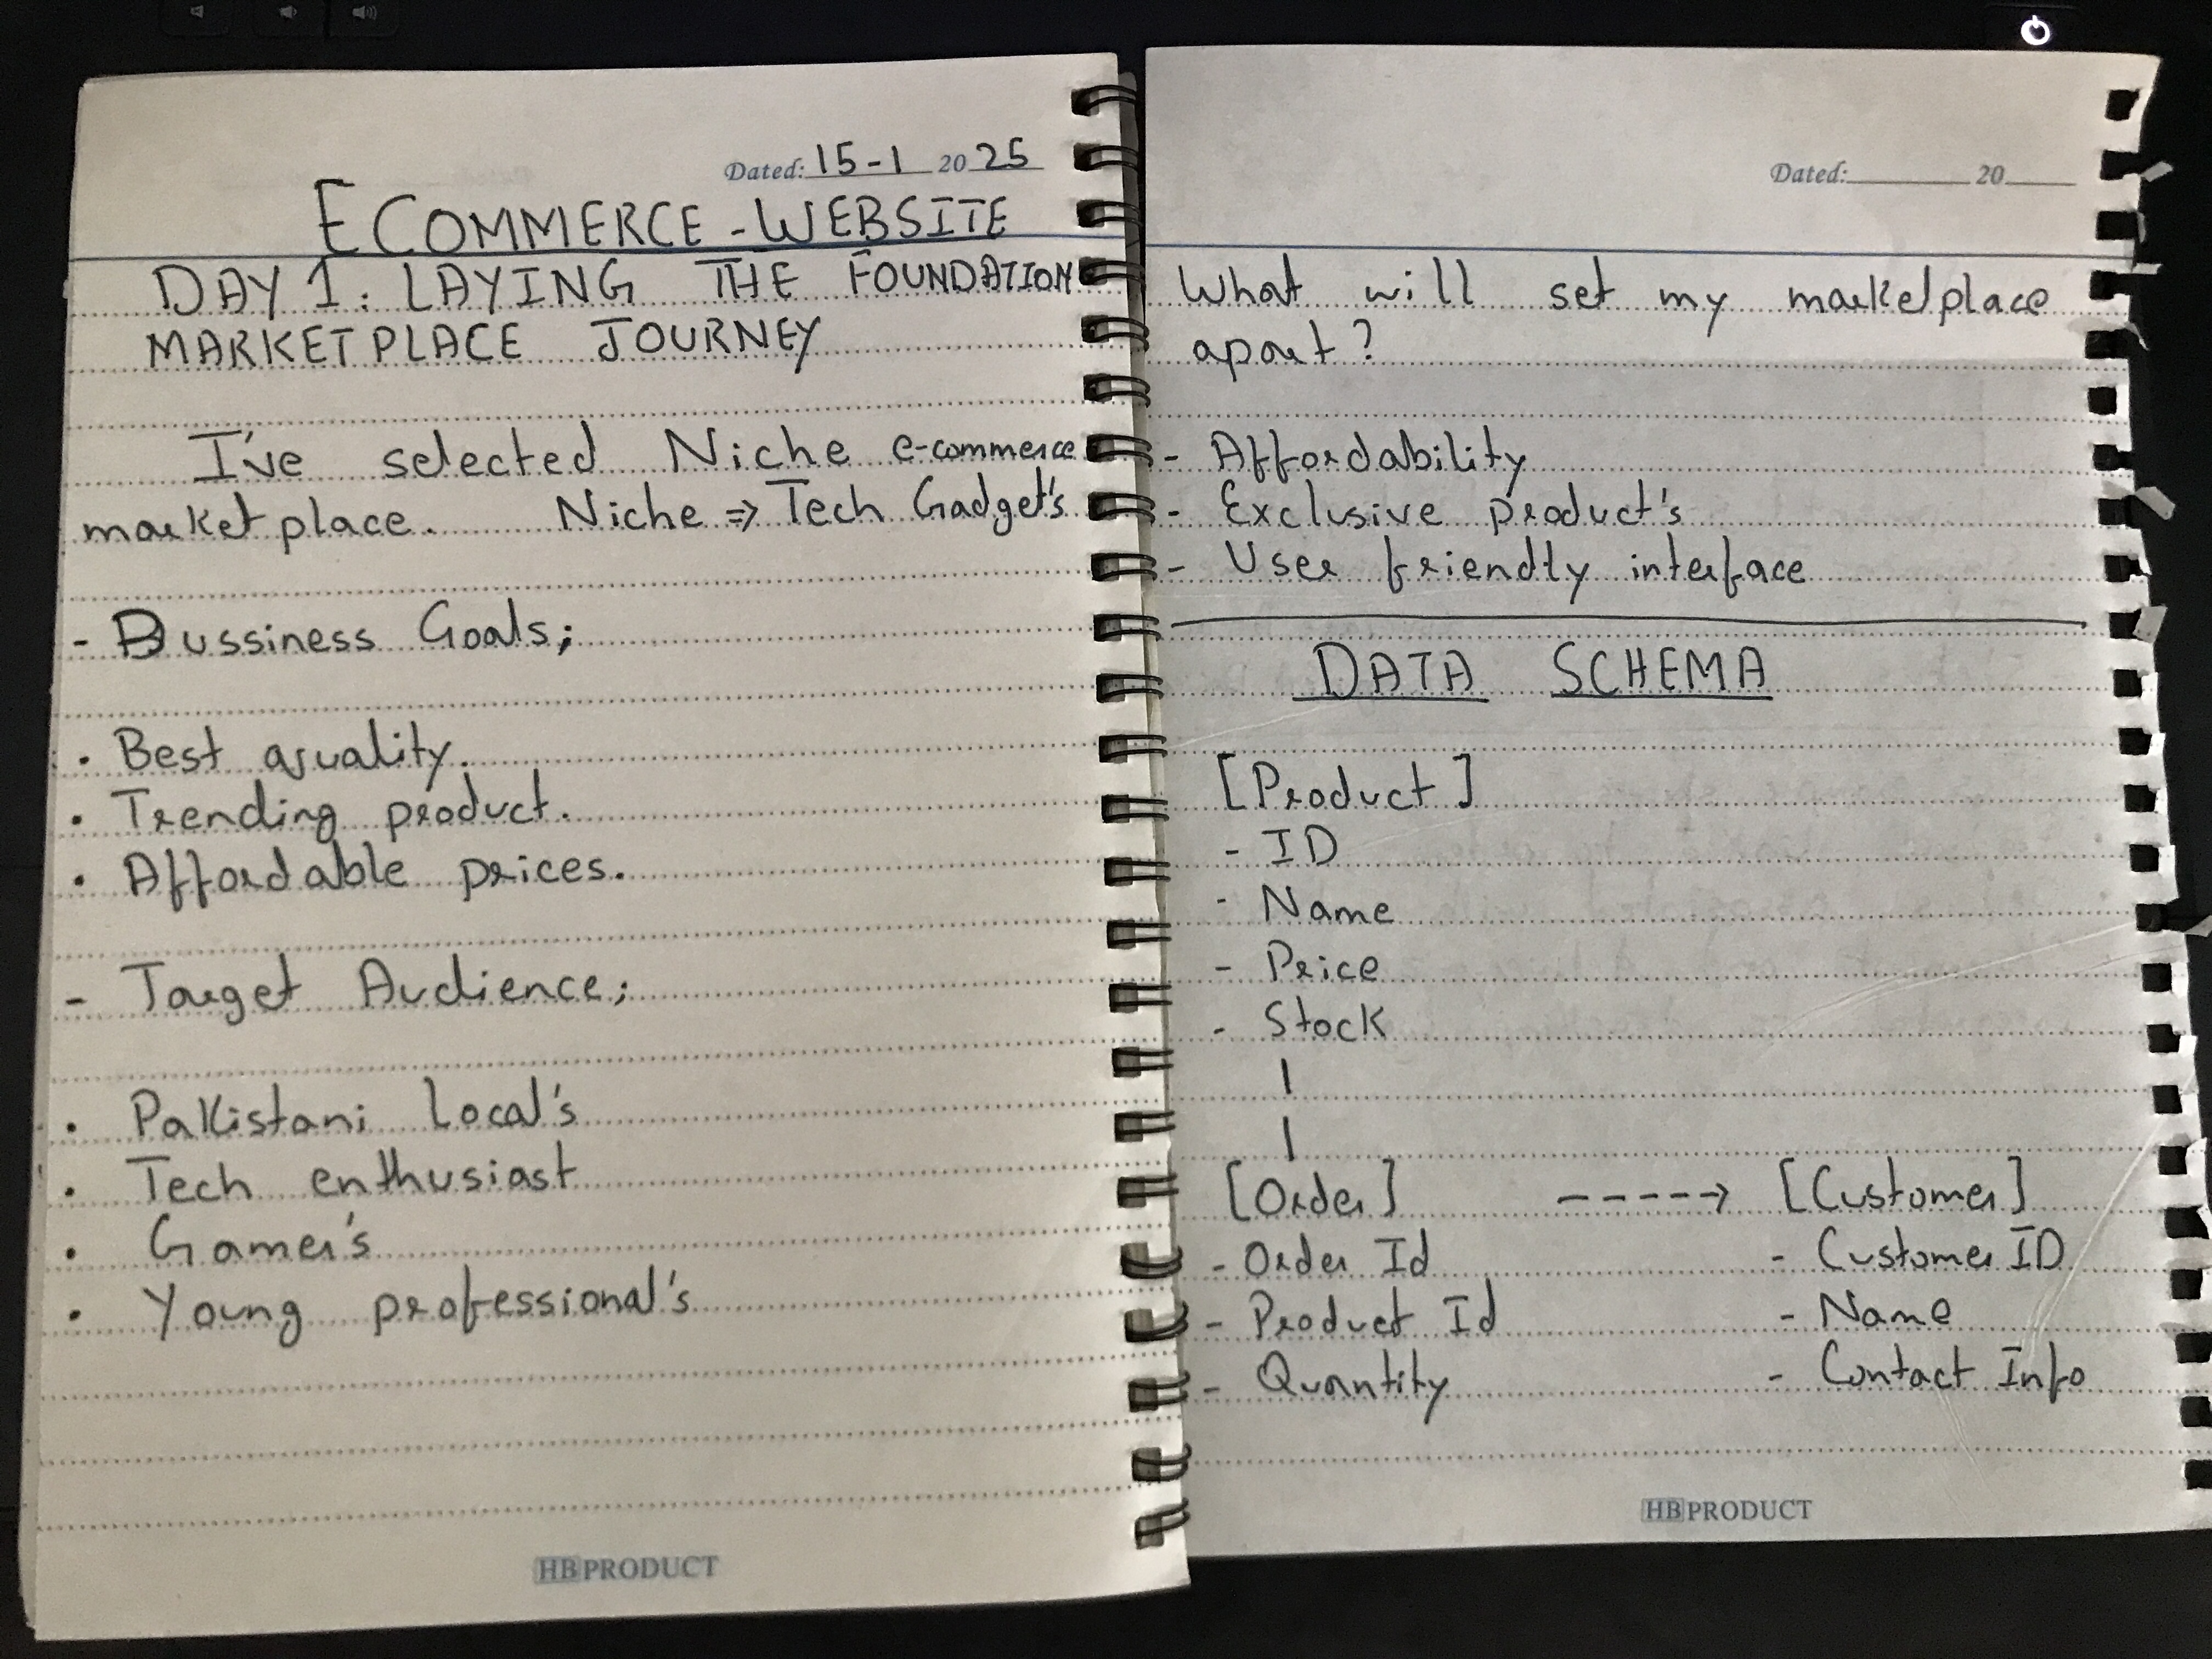 Dated: 15-1 20 25
ECOMMERCE - WEBSITE
DAY 1: LAYING THE FOUNDATION
MARKETPLACE JOURNEY
I've selected Niche e-commerce
market place. Niche => Tech Gadget's
- Bussiness Goals;
• Best quality.
• Trending product.
• Affordable prices.
- Target Audience;
• Pakistani Local's
• Tech enthusiast
• Gamer's
• Young professional's
HB PRODUCT
Dated: 20
What will set my marketplace
apart?
- Affordability
- Exclusive product's
- User friendly interface
DATA SCHEMA
[Product]
- ID
- Name
- Price
- Stock
|
|
[Order] -----> [Customer]
- Order Id - Customer ID
- Product Id - Name
- Quantity - Contact Info
HB PRODUCT